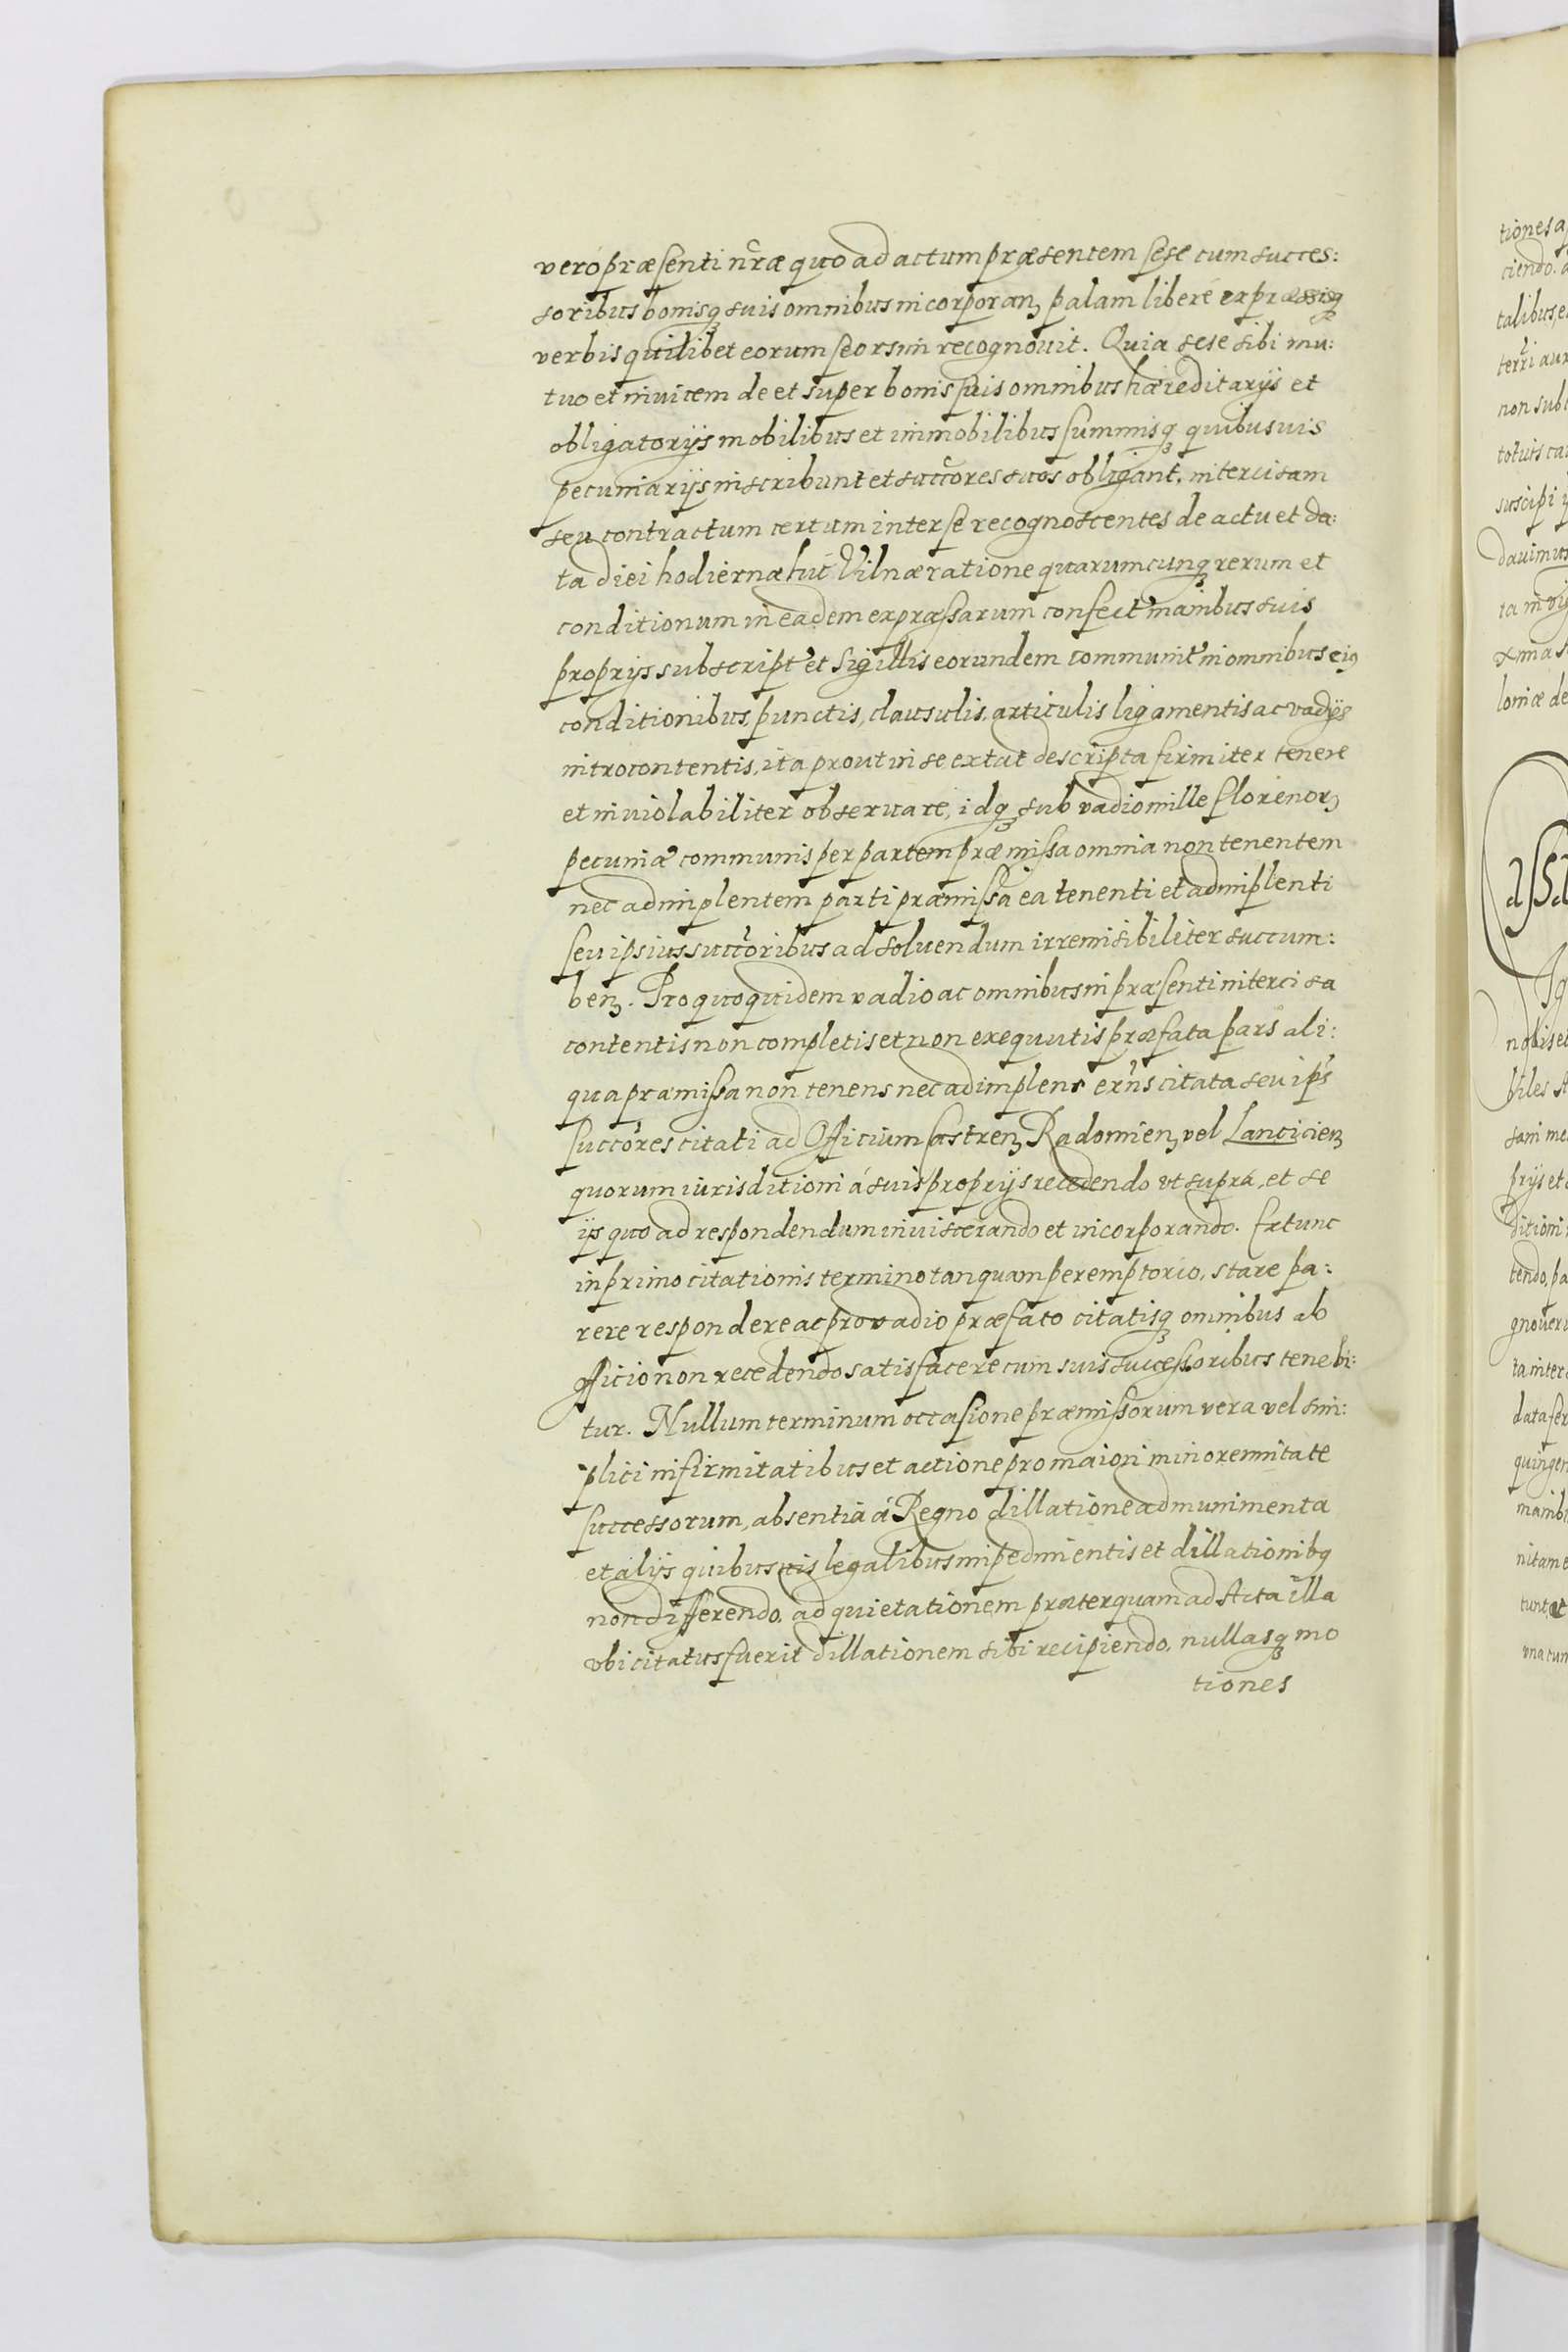 vero præsenti nr̃æ quo ad actum præsentem sese cum succes:
soribus bonisq suis omnibus incorporanȝ palam libere expræssisq
verbis quilibet eorum seorsim recognovit. Quia sese sibi mu:
tuo et invicem de et super bonis suis omnibus hæreditarijs et
obligatorijs mobilibus et immobilibus summisqȝ quibusuis
pecuniarijs inscribunt et succ̃ores suos obligant, intercisam
seu contractum certum inter se recognoscentes de actu et da:
ta diei hodiernæ hic Vilnæ ratione quarumcunqȝ rerum et
conditionum in eadem expræssarum confect manibus suis
proprijs subscript et sigillis eorundem communit in omnibus eiꝰ
conditionibus, punctis, clausulis, articulis ligamentis ac vadijs
introcontentis, ita prout in se extat descripta firmiter tenere
et inviolabiliter observare, idqȝ sub vadio mille florenorȝ
pecuniæ communis per partem præmissa omnia non tenentem
nec adimplentem parti præmissa ea tenenti et adimplenti
seu ipsius succ̃oribus ad soluendum irremisibiliter succum:
benȝ. Pro quo quidem vadio ac omnibus in præsenti intercisa
contentis non completis et non exequutis præfata pars ali:
qua præmissa non tenens nec adimplens exñs citata seu ips
succ̃ores citati ad Officium Castrenȝ Radomienȝ vel Lancicienȝ
quorum iurisditioni á suis proprijs recedendo vt supra, et se
ijs quo ad respondendum inviscerando et incorporando. Extunc
in primo citationis termino tanquam peremptorio, stare pa:
rere respondere ac pro vadio præfato citatisqȝ omnibus ab
officio non recedendo satisfacere cum suis successoribus tenebi:
tur. Nullum terminum occasione præmissorum vera vel sim:
plici infirmitatibus et actione pro maiori minorennitate
successorum, absentia á Regno dillatione ad munimenta
et alijs quibusuis legalibus impedimentis et dillationibq
non differendo, ad quietationem præterquam ad Acta illa
vbi citatus fuerit dillationem sibi recipiendo, nullasqȝ mo
tiones